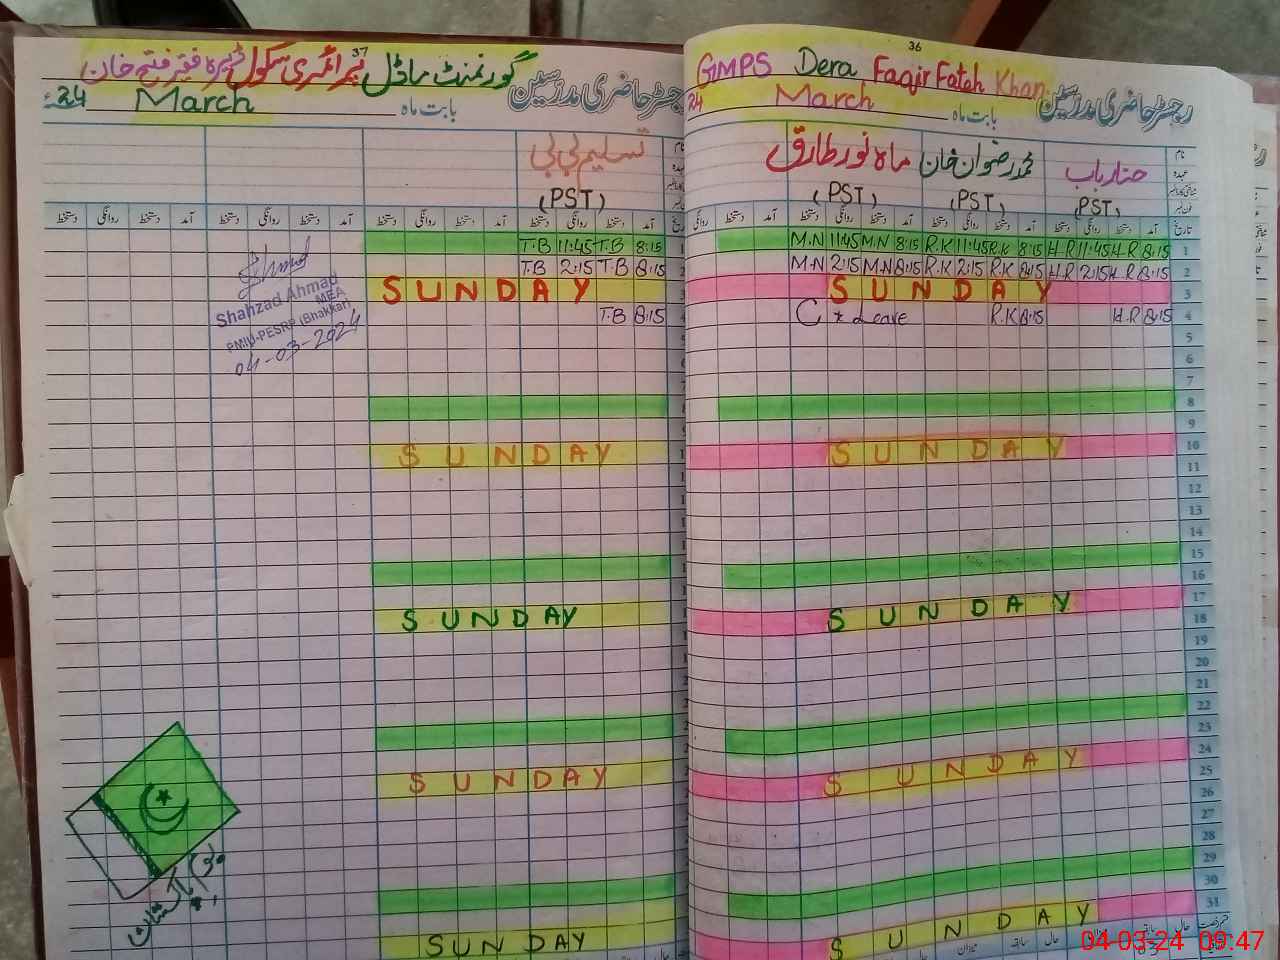 37
گورنمنٹ ماڈل پرائمری سکول ڈیرہ فقیر فتح خان
رجسٹر حاضری مدرسین
بابت ماہ March 24
تسلیم بی بی
(PST)
آمد دستخط روانگی دستخط آمد دستخط روانگی دستخط آمد دستخط روانگی دستخط آمد دستخط روانگی دستخط
8:15 T.B 11:45 T.B
8:15 T.B 2:15 T.B
SUNDAY
8:15 T.B
Shahzad Ahmad
MEA
PMIU-PESRP (Bhakkar)
04-03-2024
SUNDAY
SUNDAY
SUNDAY
SUNDAY
36
GMPS Dera Faqir Fatah Khan
رجسٹر حاضری مدرسین
بابت ماہ March 24
نام حنا رباب محمد رضوان خان ماہ نور طارق
عہدہ
(PST) (PST) (PST)
تاریخ آمد دستخط روانگی دستخط آمد دستخط روانگی دستخط آمد دستخط روانگی دستخط آمد دستخط روانگی
1 8:15 H.R 11:45 H.R 8:15 R.K 11:45 R.K 8:15 M.N 11:45 M.N
2 8:15 H.R 2:15 H.R 8:15 R.K 2:15 R.K 8:15 M.N 2:15 M.N
3 SUNDAY
4 8:15 H.R 8:15 R.K C * Leave
5
6
7
8
9
10 SUNDAY
11
12
13
14
15
16
17 SUNDAY
18
19
20
21
22
23
24 SUNDAY
25
26
27
28
29
30
31 SUNDAY
04-03-24 09:47